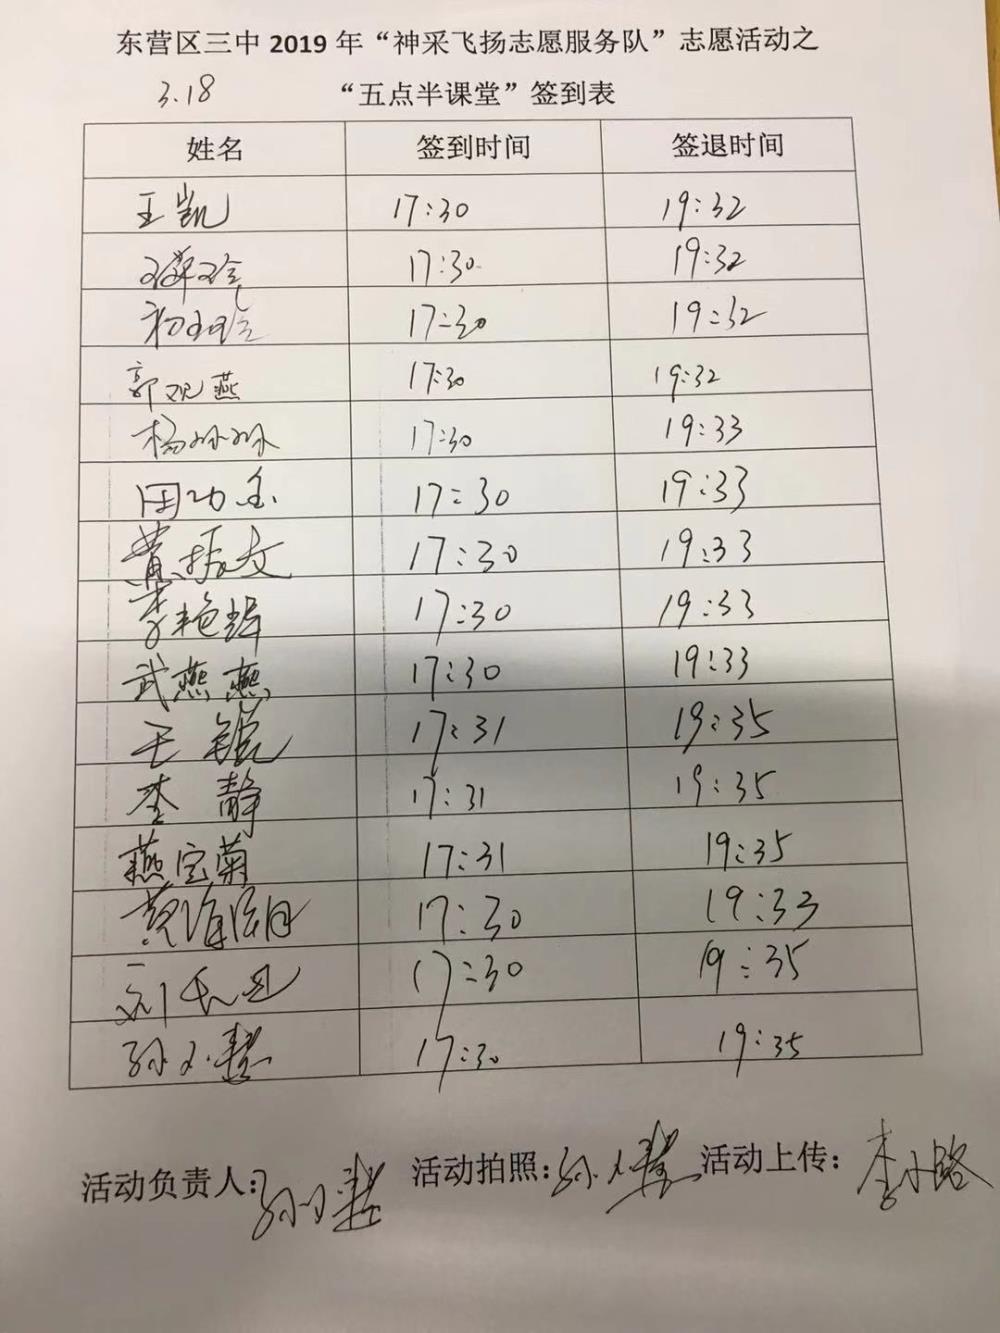 东营区三中 2019 年“神采飞扬志愿服务队”志愿活动之
3.18 “五点半课堂”签到表
姓名 签到时间 签退时间
王凯 17:30 19:32
17:30 19:32
17:30 19:32
郭观燕 17:30 19:32
杨孙孙 17:30 19:33
田功金 17:30 19:33
黄振文 17:30 19:33
李艳娟 17:30 19:33
武燕燕 17:30 19:33
王锟 17:31 19:35
李静 17:31 19:35
燕宝菊 17:31 19:35
黄海滨 17:30 19:33
17:30 19:35
孙小慧 17:30 19:35
活动负责人:孙小慧 活动拍照:孙小慧 活动上传:李小路